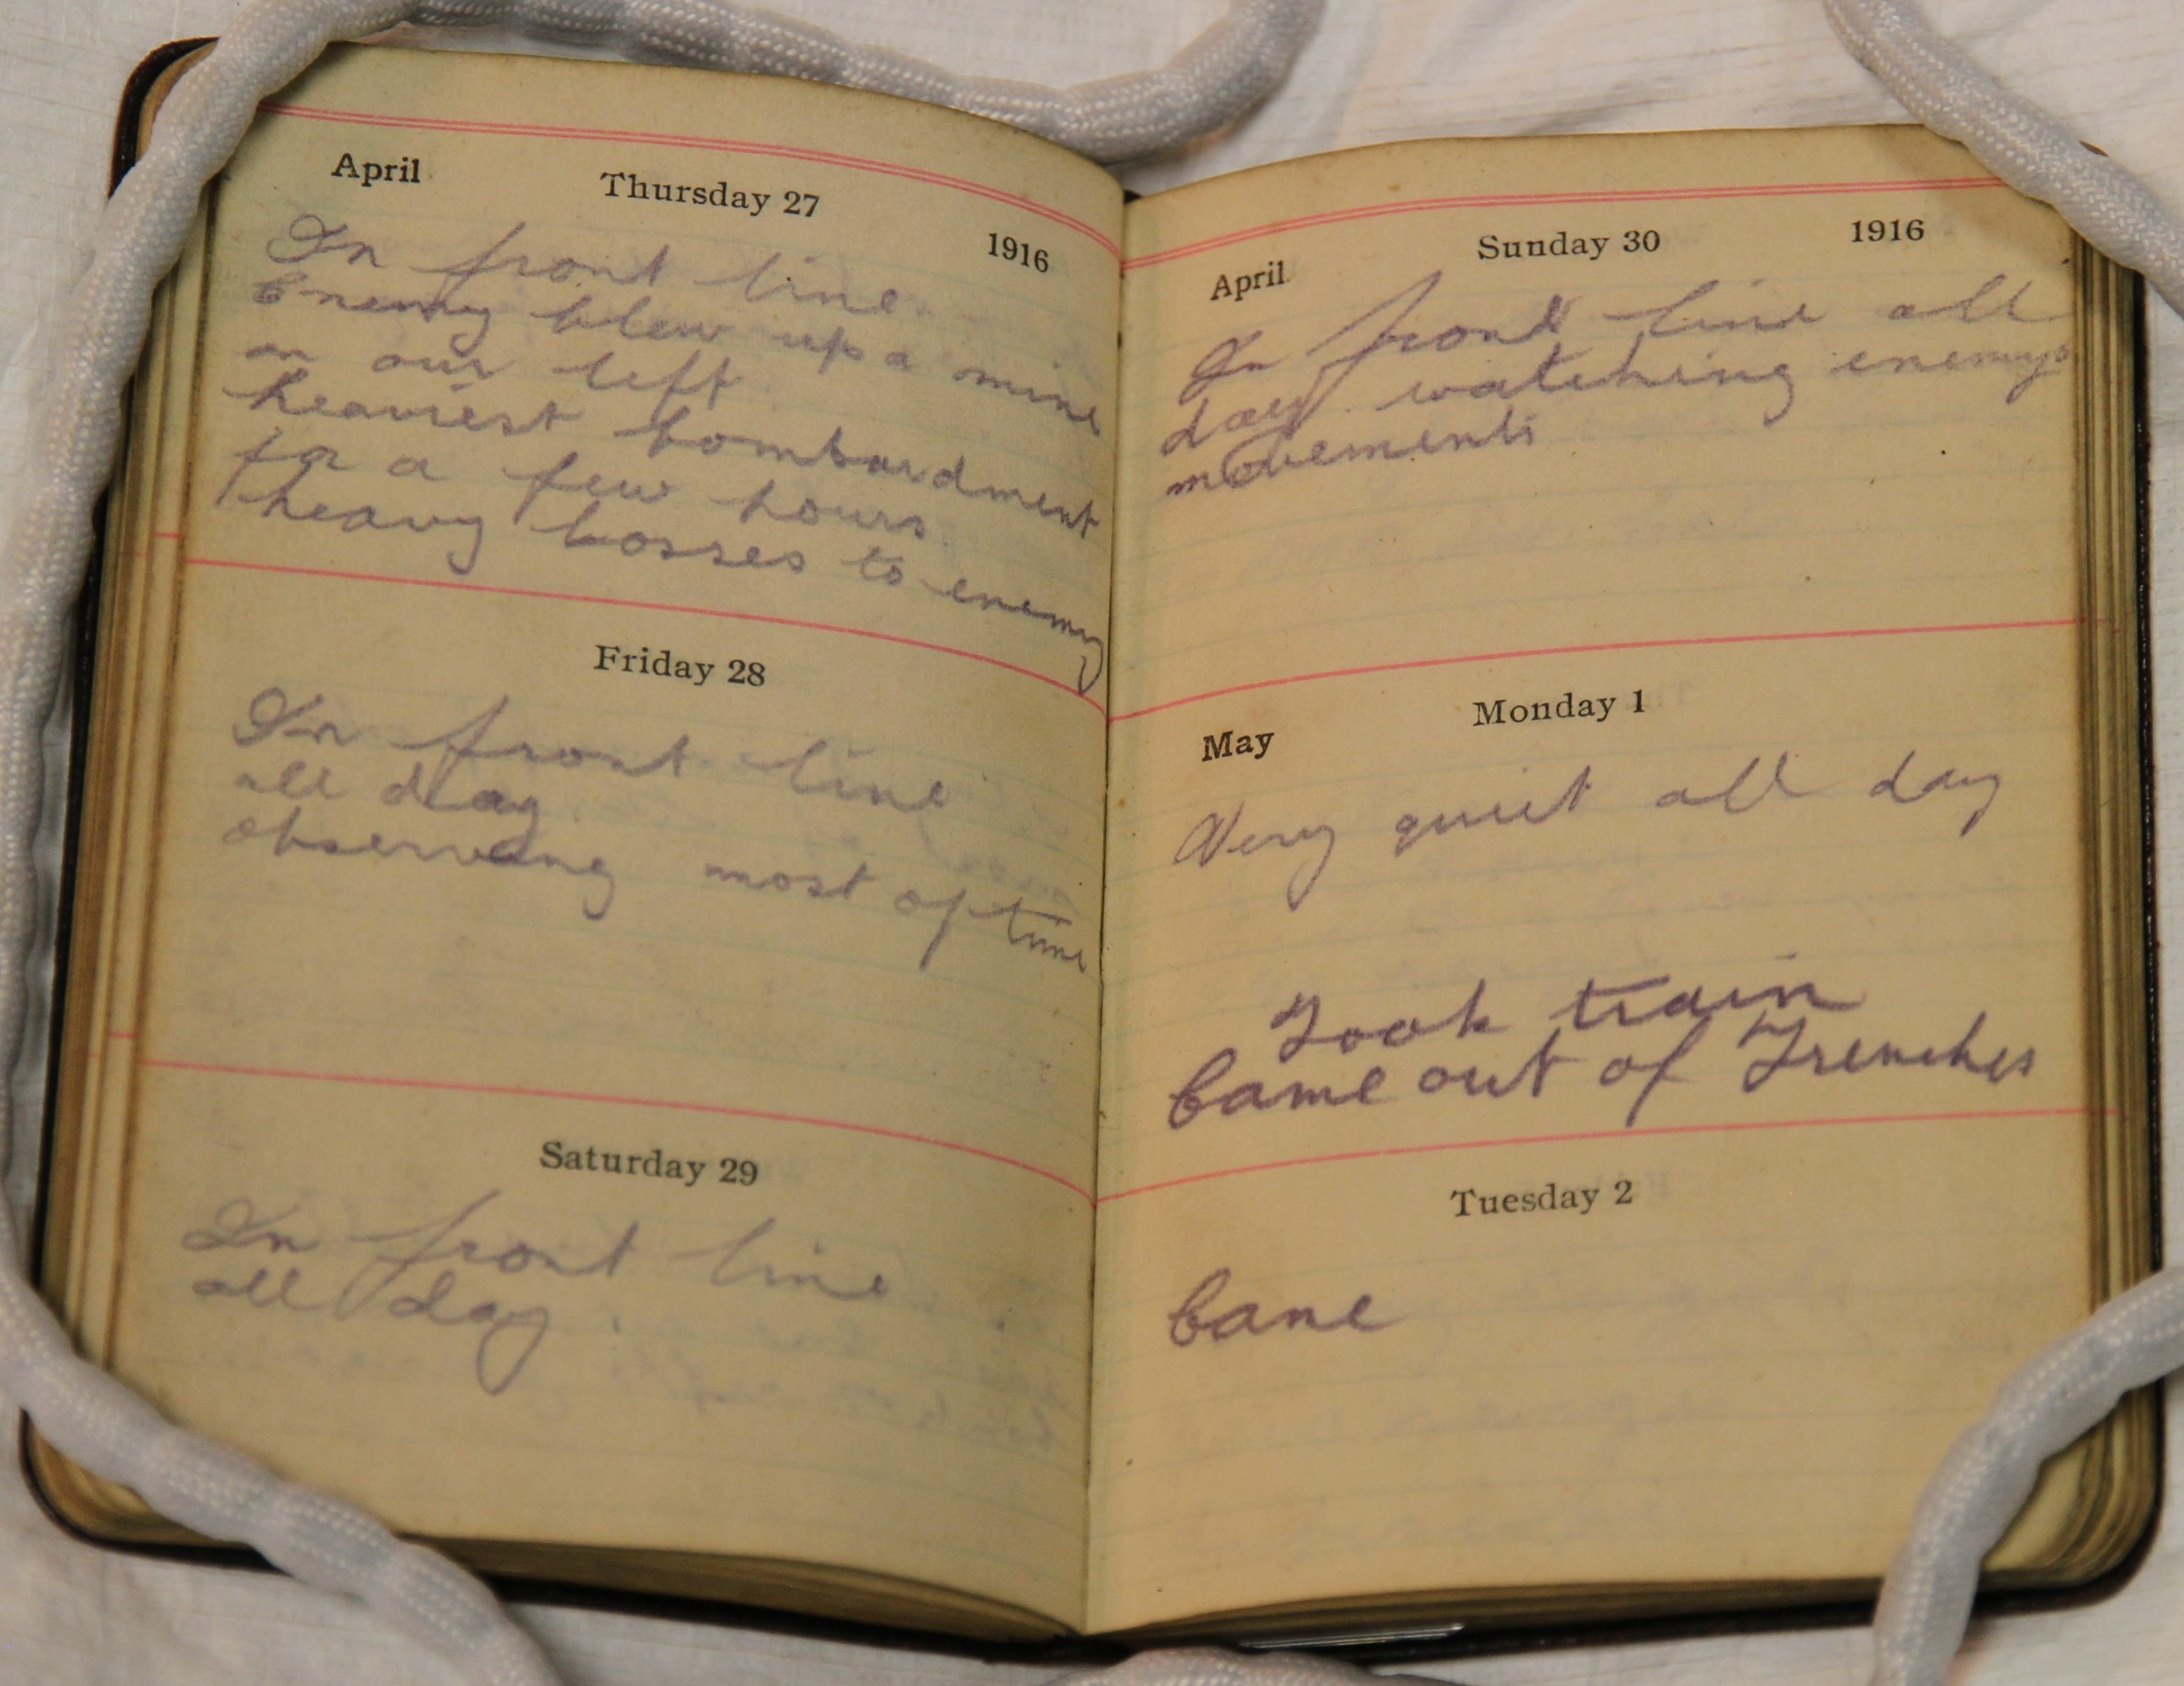 April Thursday 27 1916
In front line
Enemy blew up a mine
on our left
heaviest bombardment
for a few hours
heavy losses to enemy
Friday 28
In front line
all day
observing most of time
Saturday 29
In front line
all day.
April Sunday 30 1916
In front line all
day. watching enemys
movements
May Monday 1
Very quiet all day
Took train
Came out of Trenches
Tuesday 2
Came